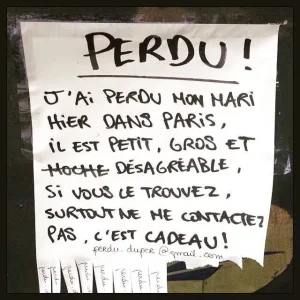 PERDU !
J'Ai PERDU MON MARI
HiER DANS PARiS,
iL EST PETiT, GROS ET
MOCHE DÉSAGRÉABLE,
Si VOUS LE TROUVEZ,
SURTOUT NE ME CONTACTEZ
PAS, C'EST CADEAU !
perdu.duper@gmail.com